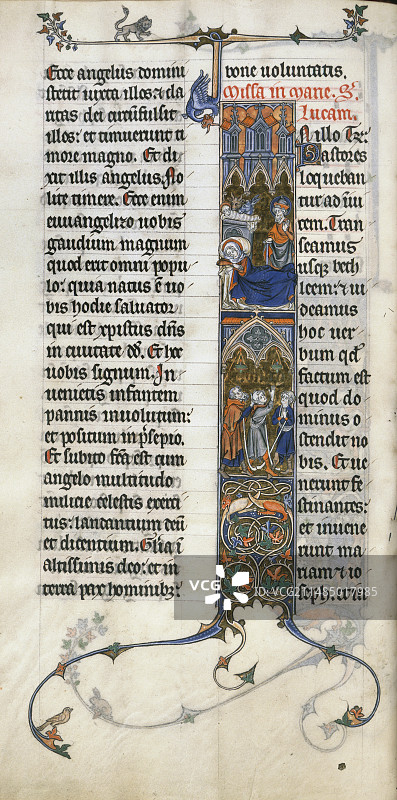 Ecce angelus domini
stetit iuxta illos: et cla
ritas dei circumfulsit
illos: et timuerunt ti
more magno. Et di
xit illis angelus. No
lite timere. Ecce enim
euuangelizo uobis
gaudium magnum
quod erit omni popu
lo: quia natus ē uo
bis hodie saluator
qui est xpistus dn̄s
in ciuitate dd̄. Et hoc
uobis signum. In
uenietis infantem
pannis inuolutum:
et positum in p̄sepio.
Et subito fc̄a est cum
angelo multitudo
milicie celestis exerci
tus: laudantium deū
et dicentium. Glīa i
altissimis deo: et in
terra pax hominibꝫ
bone uoluntatis.
Missa in mane. S.
Lucam.
N illo Tr̄:
Pastores
loqueban
tur ad īui
cem. Tran
seamus
usqꝫ beth
leem: et ui
deamus
hoc uer
bum qd̄
factum est
quod do
minus o
stendit no
bis. Et ue
nerunt fe
stinantes:
et inuene
runt ma
riam et io
VCG
ID:VCG21485017985